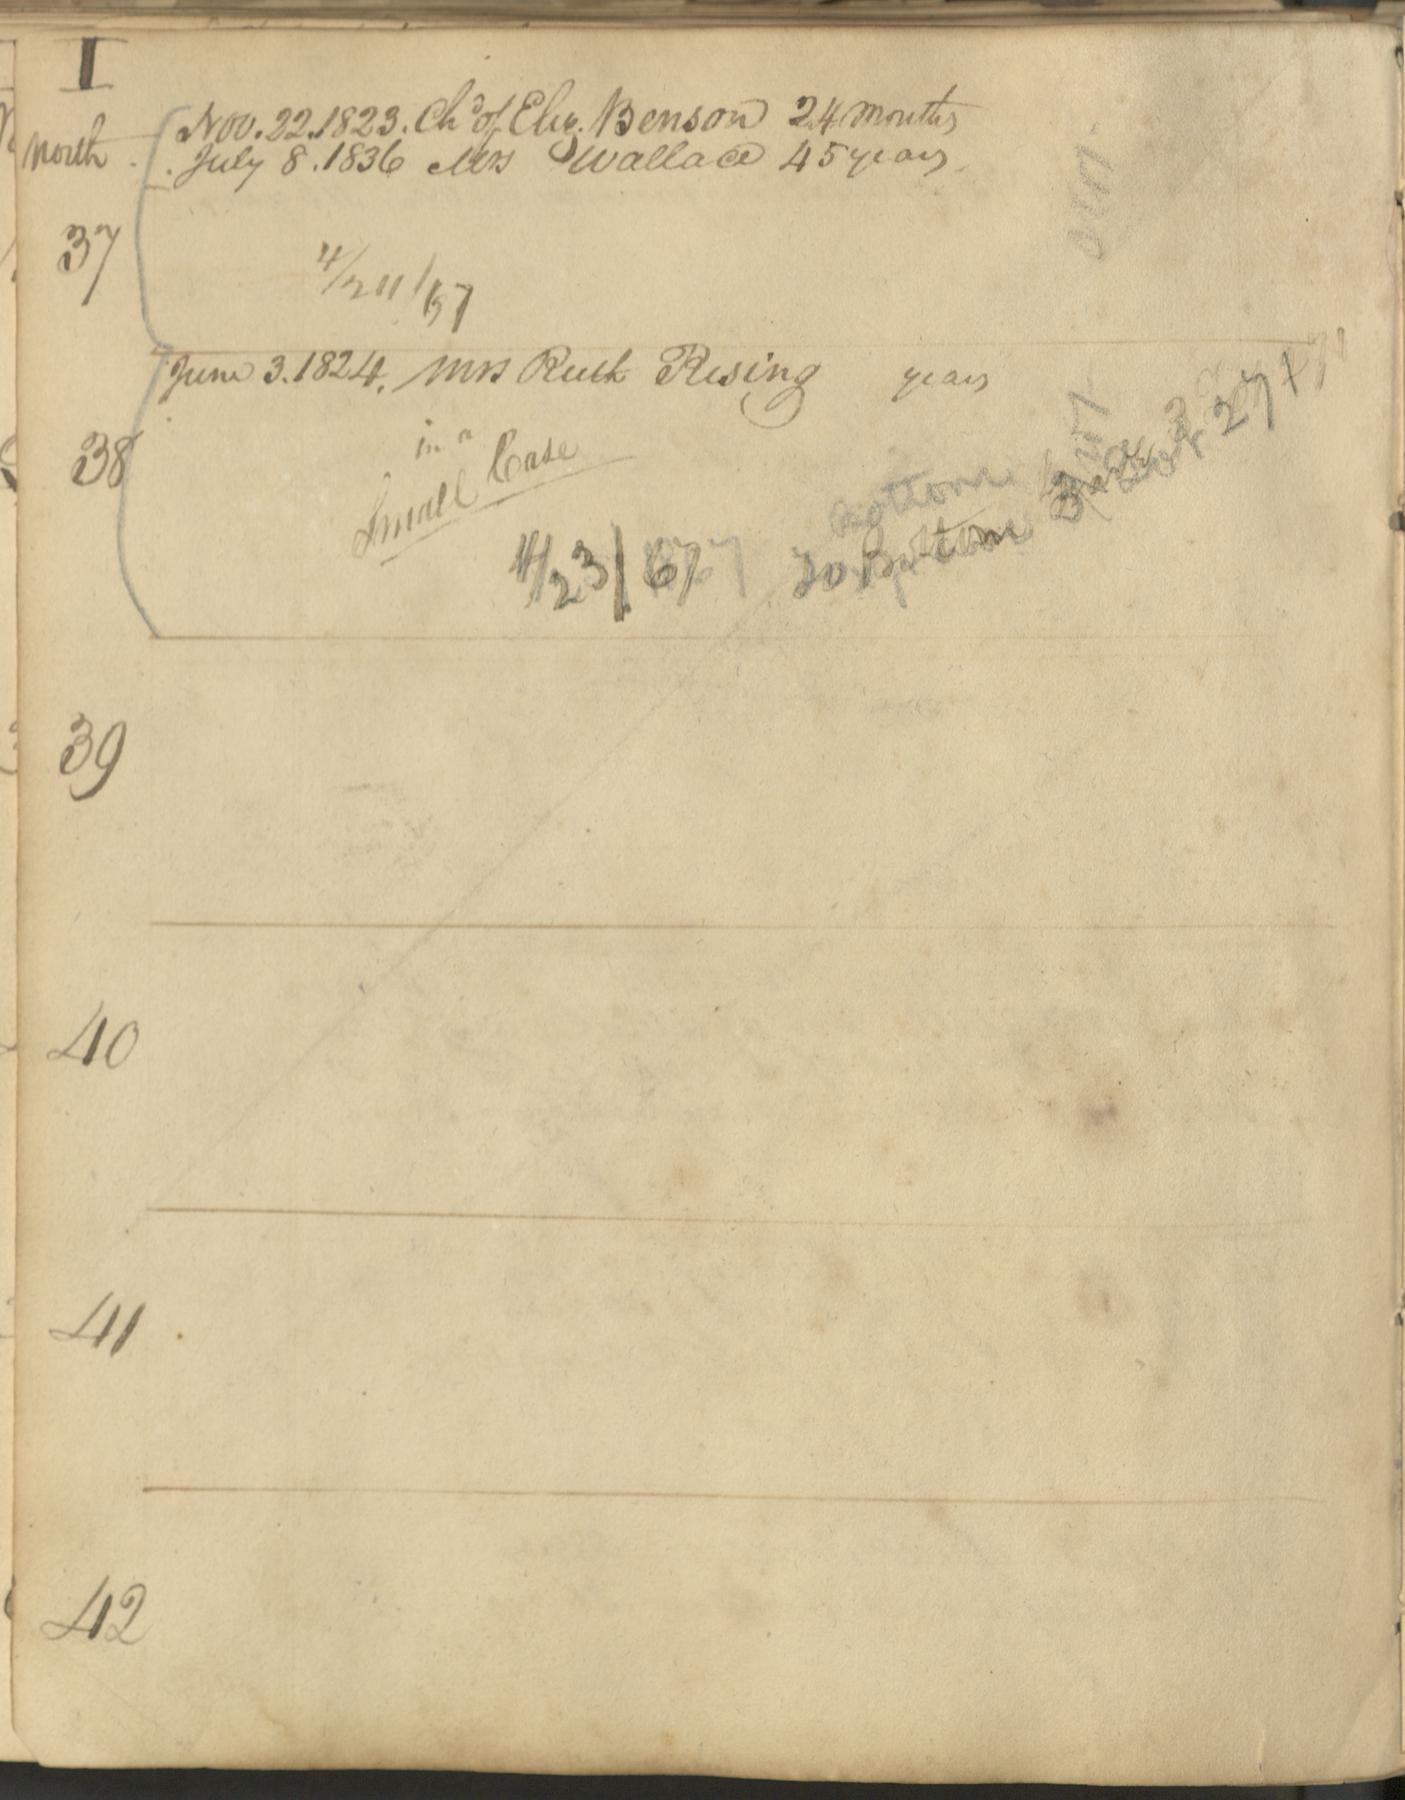 I
Nov. 22. 1823. Chd of Eliz. Benson 24 months
North July 8. 1836 Mrs Wallace 45 years
37
4/20/67
June 3. 1824. Mrs Ruth Rising years
38
in a
Small Case
Bottom
4/23/67 To Bottom
39
40
41
42